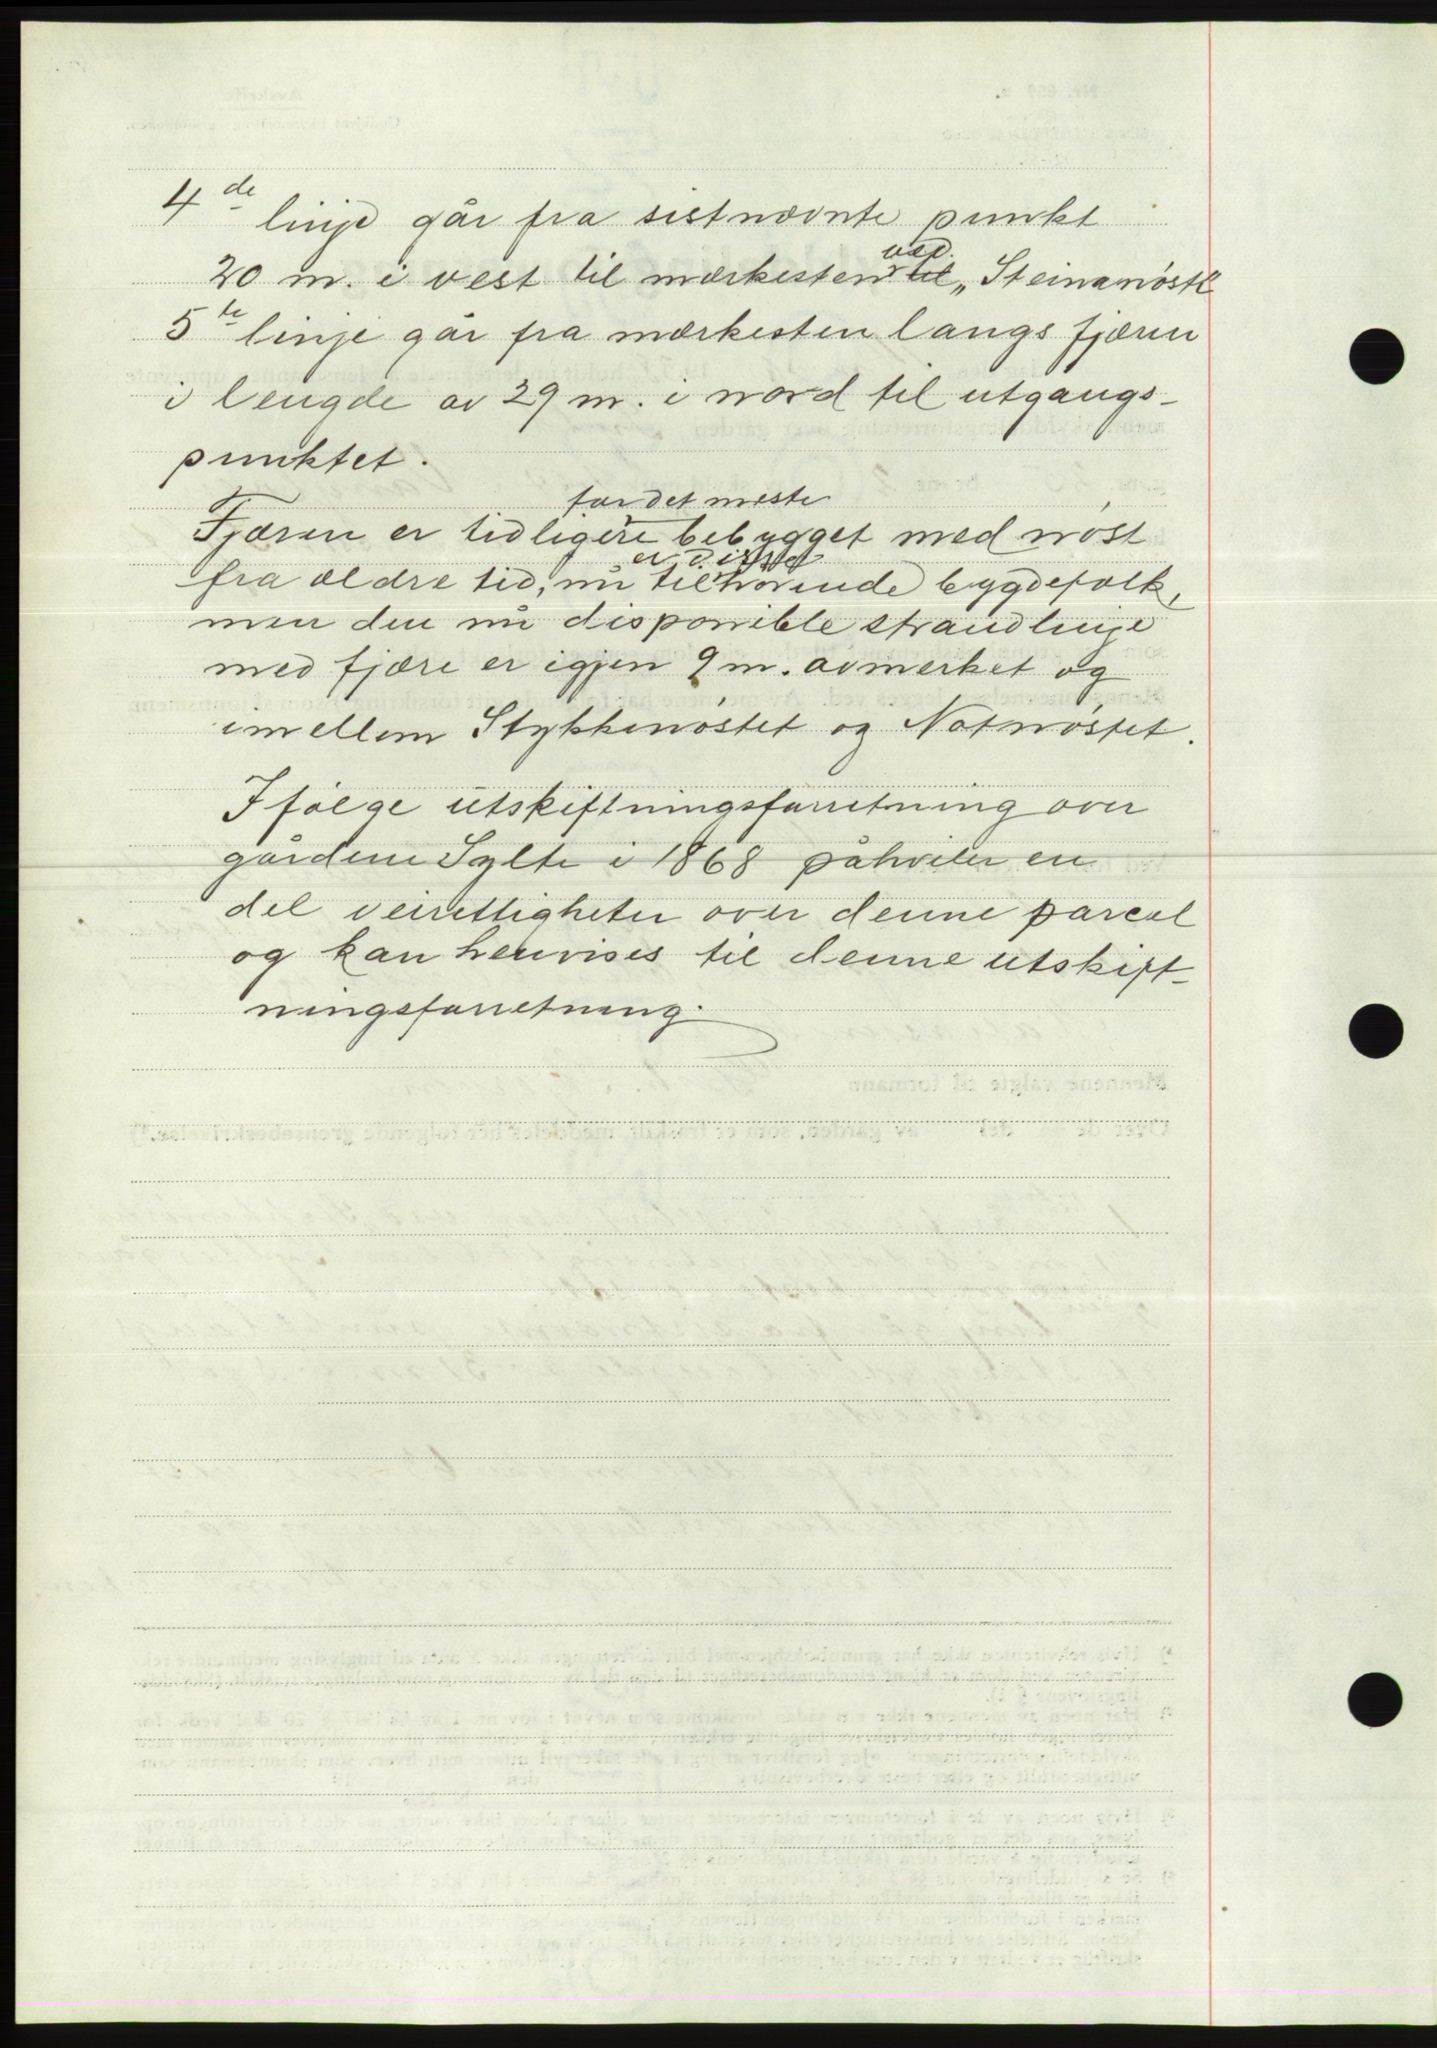 4de linje går fra sistnævnte punkt
20 m. i vest til mærkesten ~~til~~ ved „Steinanöst"
5te linje går fra mærkesten langs fjæren
i lengde av 29 m. i nord til utgangs-
punktet.
for det meste
Fjæren er tidligere bebygget med nöst
er disse
fra ældre tid, nu tilhörende bygdefolk,
men den nu disponible strandlinje
med fjære er igjen 9 m. avmerket og
imellem Stykkenöstet og Notnöstet.
Ifölge utskiftningsforretning over
gårdene Sylte i 1868 påhviler en
del veirettigheter over denne parcel
og kan henvises til denne utskift-
ningsforretning.